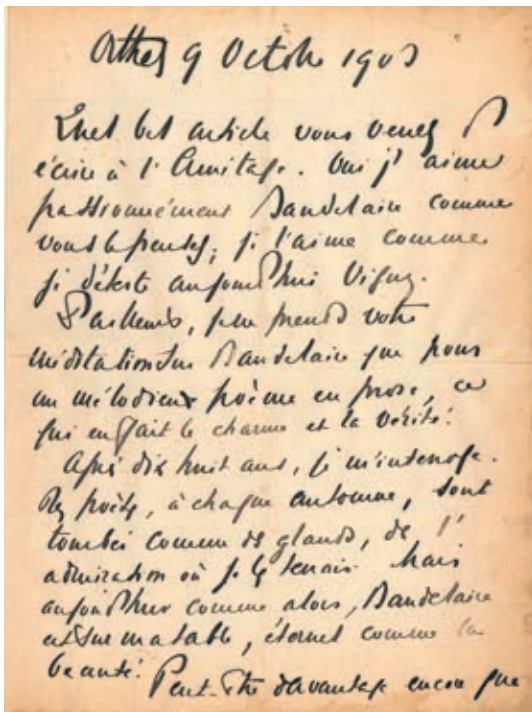 Orthez 9 Octobre 1903
Quel bel article vous venez d'
écrire à l'Ermitage. Oui j'aime
passionnément Baudelaire comme
vous le pensez; je l'aime comme
je déteste aujourd'hui Vigny.
D'ailleurs, je ne prends votre
méditation sur Baudelaire que pour
un mélodieux poème en prose, ce
qui en fait le charme et la vérité.
Après dix huit ans, je m'interroge.
Des poètes, à chaque automne, sont
tombés comme des glands, de l'
admiration où je les tenais. Mais
aujourd'hui comme alors, Baudelaire
est sur ma table, éternel comme la
beauté. Peut-être davantage encore que